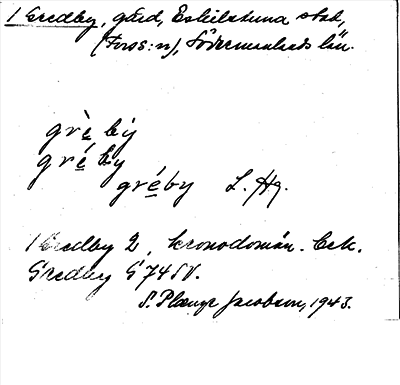 1 Gredby, gård, Eskilstuna stad,
(Fors: n), Södermanlands län.
grè bý
gré by
gréby L. Hg.
1 Gredby 2, kronodomän. Eek.
Gredby G 74 SV.
S. Plænge Jacobson, 1943.